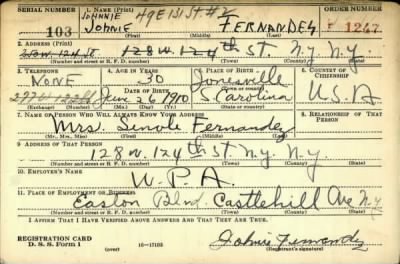 SERIAL NUMBER 1. NAME (Print) ORDER NUMBER
JOHNNIE
103 Johnie FERNANDES 1247
(First) (Middle) (Last)
2. ADDRESS (Print)
128 W. 124th St. N.Y. N.Y.
(Number and street or R. F. D. number) (Town) (County) (State)
3. TELEPHONE 4. AGE IN YEARS 5. PLACE OF BIRTH 6. COUNTRY OF CITIZENSHIP
NONE 30 Jonesville
DATE OF BIRTH (Town or county)
June 1910 S Carolina U.S.A
(Exchange) (Number) (Mo.) (Day) (Yr.) (State or country)
7. NAME OF PERSON WHO WILL ALWAYS KNOW YOUR ADDRESS 8. RELATIONSHIP OF THAT PERSON
Mrs. Fernandez
(Mr., Mrs., Miss) (First) (Middle) (Last)
9. ADDRESS OF THAT PERSON
128 W. 124th St N.Y. N.Y.
(Number and street or R. F. D. number) (Town) (County) (State)
10. EMPLOYER'S NAME
W.P.A
11. PLACE OF EMPLOYMENT OR BUSINESS
Easton Blvd. Castlehill Ave N.Y
(Number and street or R. F. D. number) (Town) (County) (State)
I AFFIRM THAT I HAVE VERIFIED ABOVE ANSWERS AND THAT THEY ARE TRUE.
REGISTRATION CARD
D. S. S. Form 1 16-17105 Johnie Fernandez
(Registrant's signature)